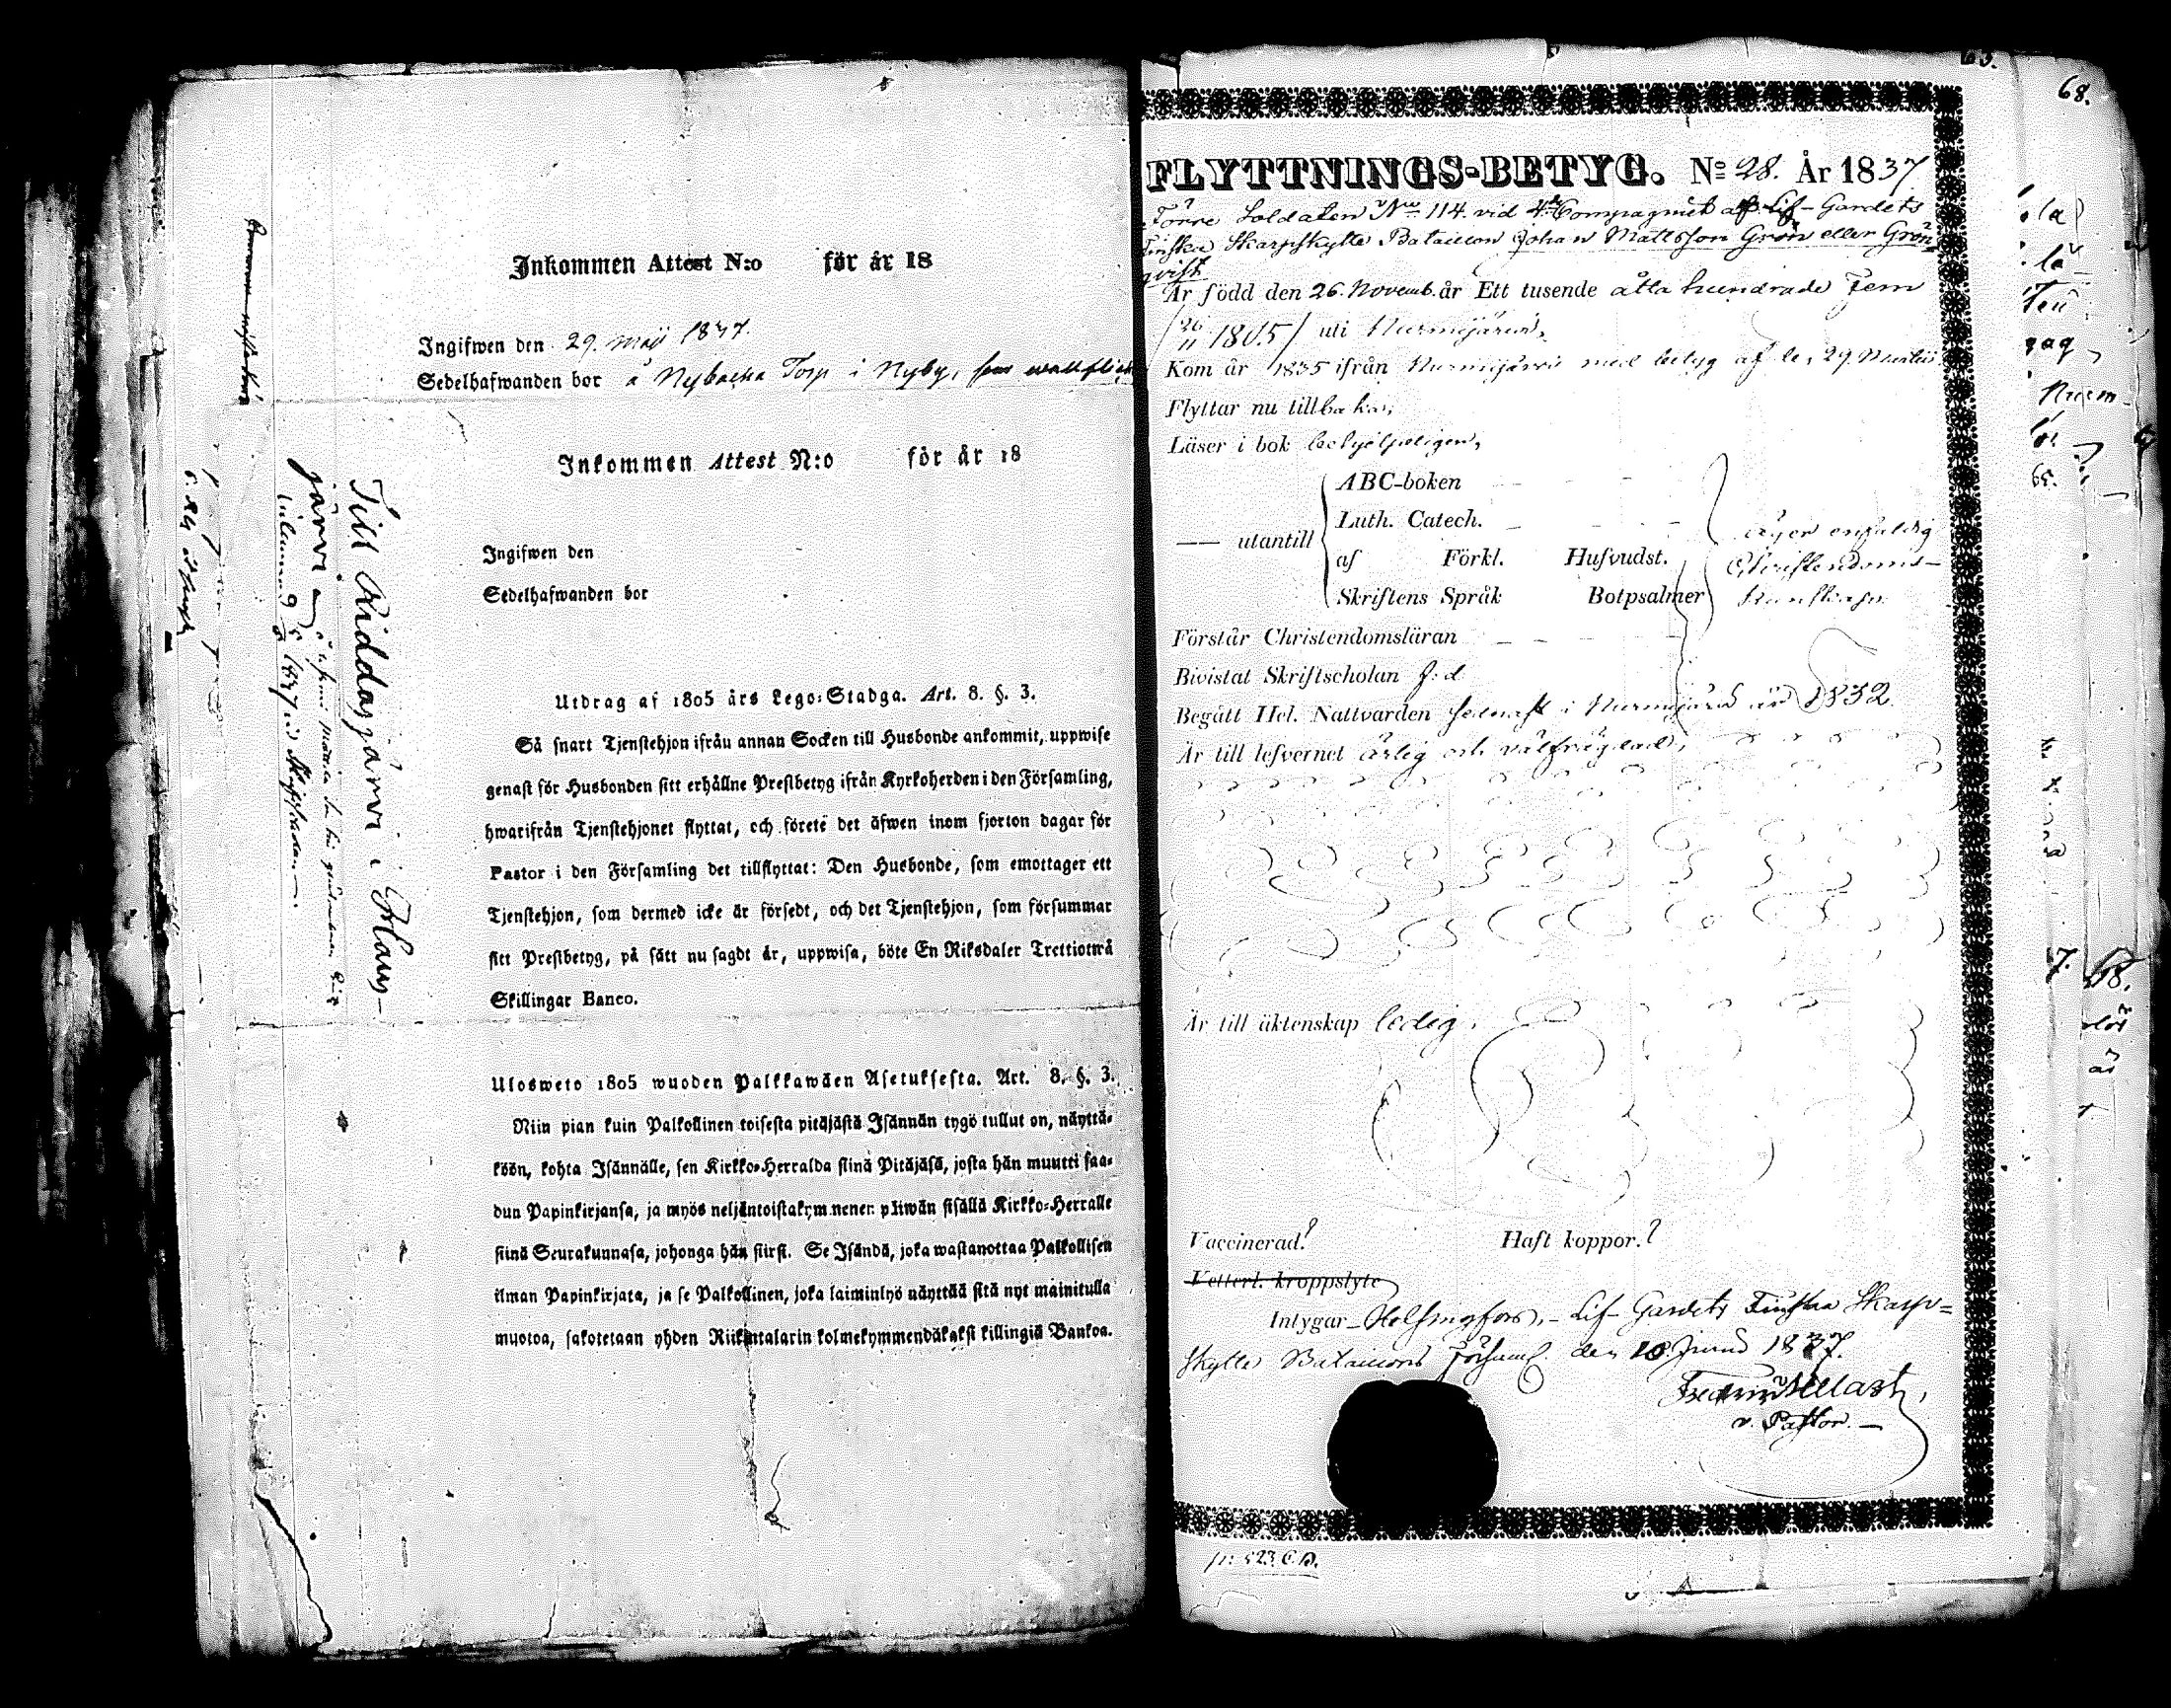 Inkommen Attest N:o för år 18
Ingifwen den 29. Maji 1837.
Sedelhafwanden bor å Nybacka Torp i Nyby, som
Inkommen Attest N:o för år 18
Ingifwen den
Sedelhafwanden bor
Utdrag af 1805 års Lego-Stadga. Art. 8. §. 3.
Så snart Tjenstehjon ifrån annan Socken till Husbonde ankommit, uppwise
genast för Husbonden sitt erhållne Prestbetyg ifrån Kyrkoherden i den Församling,
hwarifrån Tjenstehjonet flyttat, och förete det äfwen inom fjorton dagar för
Pastor i den Församling det tillflyttat: Den Husbonde, som emottager ett
Tjenstehjon, som dermed icke är försedt, och det Tjenstehjon, som försummar
sitt Prestbetyg, på sätt nu sagdt är, uppwisa, böte En Riksdaler Trettiotwå
Skillingar Banco.
Ulosweto 1805 wuoden Palkkawäen Asetuksesta. Art. 8. §. 3.
Niin pian kuin Palkollinen toisesta pitäjästä Isännän tygö tullut on, näyttä-
köön, kohta Isännälle, sen Kirkko-Herralda siinä Pitäjäsä, josta hän muutti saa-
dun Papinkirjansa, ja myös neljäntoistakymmenen päiwän sisällä Kirkko-Herralle
siinä Seurakunnasa, johonga hän siirsi. Se Isändä, joka wastanottaa Palkollisen
ilman Papinkirjata, ja se Palkollinen, joka laiminlyö näyttää sitä nyt mainitulla
muotoa, sakotetaan yhden Riikintalarin kolmekymmendäkaksi killingiä Bankoa.
Till Riddasjärvi i Haus-
järvi
FLYTTNINGS-BETYG. No 28. År 1837
Förre Soldaten No 114. vid 4. Compagniet af Lif-Gardets
Finska Skarpskytte Bataillon Johan Mattsson Grön eller Grön-
qvist
Är född den 26. Novemb. år Ett tusende åtta hundrade Fem
/26/11 1805/ uti Nurmijärvi,
Kom år 1835 ifrån Nurmijärvi med betyg af den 29. Martii
Flyttar nu tillbaka,
Läser i bok behjelpeligen,
ABC-boken
Luth. Catech.
utantill
af Förkl. Hufvudst.
Skriftens Språk Botpsalmer
äger enfaldig
Christendoms-
kunskap.
Förstår Christendomsläran
Bivistat Skriftscholan
Begått Hel. Nattvarden senast i Nurmijärvi år 1832.
Är till lefvernet ärlig och välfrägdad,
Är till äktenskap ledig.
Vaccinerad? Haft koppor.?
Vetterl. kroppslyte
Intygar Helsingfors, Lif-Gardets Finska Skarp-
skytte Bataillons Församl. den 18. Junii 1837.
v. Pastor.
68.